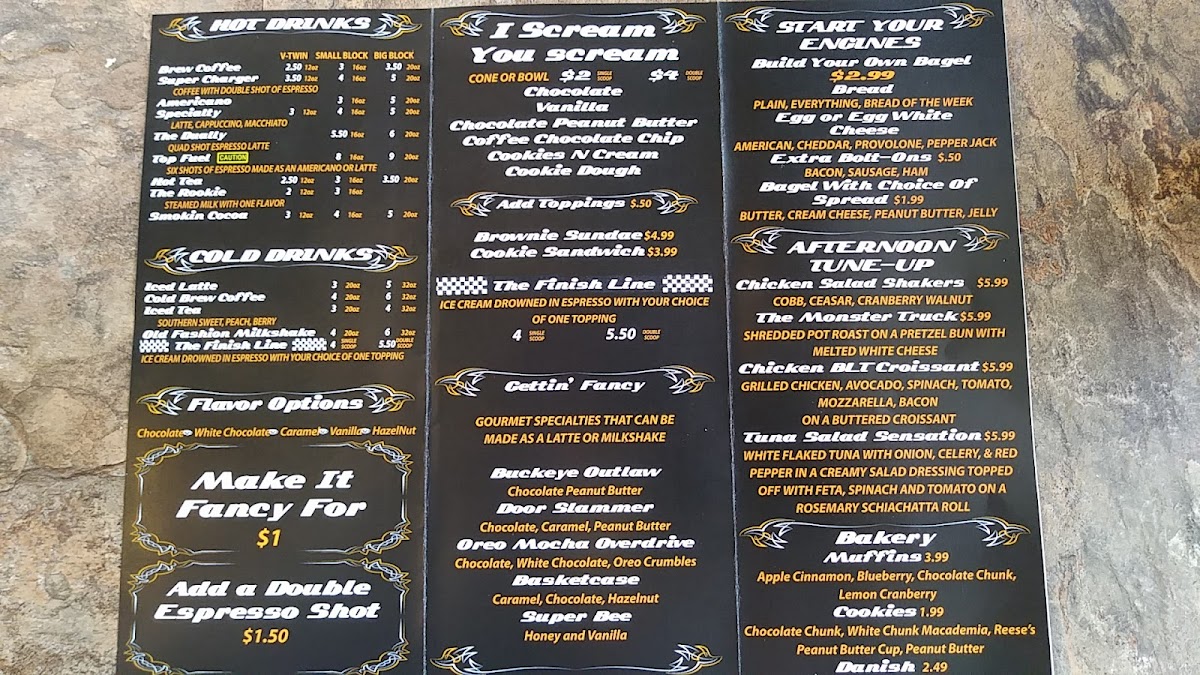 HOT DRINKS
V-TWIN SMALL BLOCK BIG BLOCK
Brew Coffee 2.50 12oz 3 16oz 3.50 20oz
Super Charger 3.50 12oz 4 16oz 5 20oz
COFFEE WITH DOUBLE SHOT OF ESPRESSO
Americano 3 16oz 5 20oz
Specialty 3 12oz 4 16oz 5 20oz
LATTE, CAPPUCCINO, MACCHIATO
The Dually 5.50 16oz 6 20oz
QUAD SHOT ESPRESSO LATTE
Top Fuel CAUTION 8 16oz 9 20oz
SIX SHOTS OF ESPRESSO MADE AS AN AMERICANO OR LATTE
Hot Tea 2.50 12oz 3 16oz 3.50 20oz
The Rookie 2 12oz 3 16oz
STEAMED MILK WITH ONE FLAVOR
Smokin Cocoa 3 12oz 4 16oz 5 20oz
COLD DRINKS
Iced Latte 3 20oz 5 32oz
Cold Brew Coffee 4 20oz 6 32oz
Iced Tea 3 20oz 4 32oz
SOUTHERN SWEET, PEACH, BERRY
Old Fashion Milkshake 4 20oz 6 32oz
The Finish Line 4 SINGLE SCOOP 5.50 DOUBLE SCOOP
ICE CREAM DROWNED IN ESPRESSO WITH YOUR CHOICE OF ONE TOPPING
Flavor Options
Chocolate White Chocolate Caramel Vanilla HazelNut
Make It
Fancy For
$1
Add a Double
Espresso Shot
$1.50
I Scream
You scream
CONE OR BOWL $2 SINGLE SCOOP $4 DOUBLE SCOOP
Chocolate
Vanilla
Chocolate Peanut Butter
Coffee Chocolate Chip
Cookies N Cream
Cookie Dough
Add Toppings $.50
Brownie Sundae $4.99
Cookie Sandwich $3.99
The Finish Line
ICE CREAM DROWNED IN ESPRESSO WITH YOUR CHOICE
OF ONE TOPPING
4 SINGLE SCOOP 5.50 DOUBLE SCOOP
Gettin' Fancy
GOURMET SPECIALTIES THAT CAN BE
MADE AS A LATTE OR MILKSHAKE
Buckeye Outlaw
Chocolate Peanut Butter
Door Slammer
Chocolate, Caramel, Peanut Butter
Oreo Mocha Overdrive
Chocolate, White Chocolate, Oreo Crumbles
Basketcase
Caramel, Chocolate, Hazelnut
Super Bee
Honey and Vanilla
START YOUR
ENGINES
Build Your Own Bagel
$2.99
Bread
PLAIN, EVERYTHING, BREAD OF THE WEEK
Egg or Egg White
Cheese
AMERICAN, CHEDDAR, PROVOLONE, PEPPER JACK
Extra Bolt-Ons $.50
BACON, SAUSAGE, HAM
Bagel With Choice Of
Spread $1.99
BUTTER, CREAM CHEESE, PEANUT BUTTER, JELLY
AFTERNOON
TUNE-UP
Chicken Salad Shakers $5.99
COBB, CEASAR, CRANBERRY WALNUT
The Monster Truck $5.99
SHREDDED POT ROAST ON A PRETZEL BUN WITH
MELTED WHITE CHEESE
Chicken BLT Croissant $5.99
GRILLED CHICKEN, AVOCADO, SPINACH, TOMATO,
MOZZARELLA, BACON
ON A BUTTERED CROISSANT
Tuna Salad Sensation $5.99
WHITE FLAKED TUNA WITH ONION, CELERY, & RED
PEPPER IN A CREAMY SALAD DRESSING TOPPED
OFF WITH FETA, SPINACH AND TOMATO ON A
ROSEMARY SCHIACHATTA ROLL
Bakery
Muffins 3.99
Apple Cinnamon, Blueberry, Chocolate Chunk,
Lemon Cranberry
Cookies 1.99
Chocolate Chunk, White Chunk Macademia, Reese's
Peanut Butter Cup, Peanut Butter
Danish 2.49